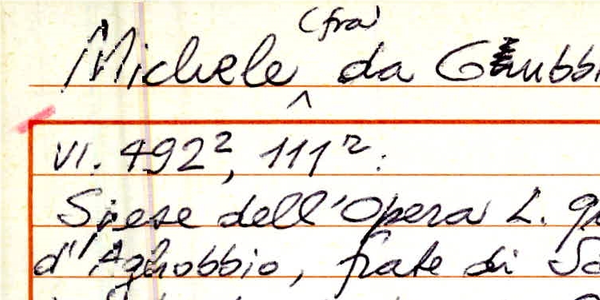 Michele (fra) da Gubbi
VI. 492², 111ʳ:
Spese dell'Opera L. qu
d'Aghobbio, frate di Sa